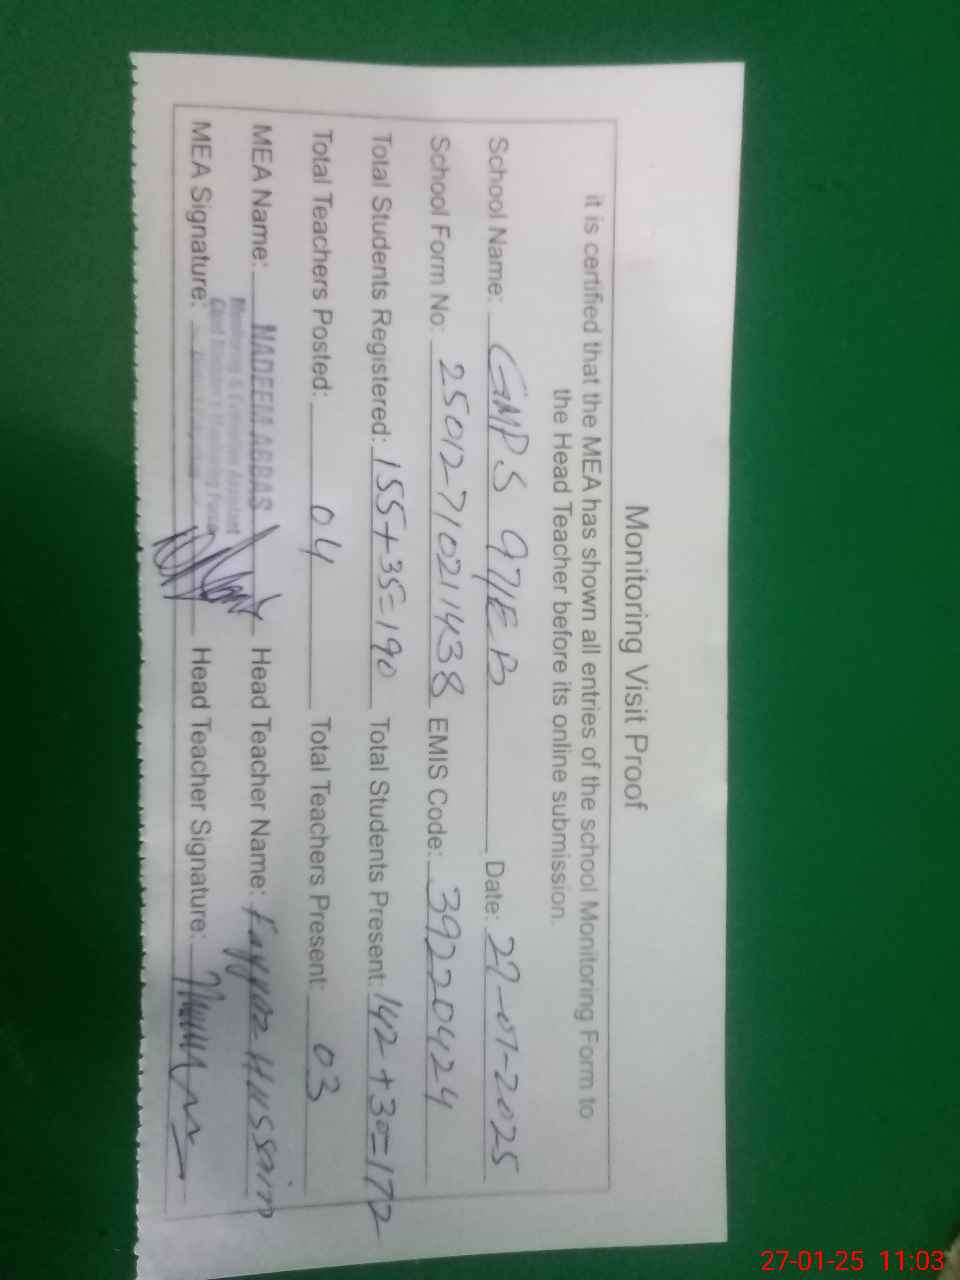 Monitoring Visit Proof
it is certified that the MEA has shown all entries of the school Monitoring Form to
the Head Teacher before its online submission.
School Name: GMPS 97/EB Date: 27-01-2025
School Form No: 25012710211438 EMIS Code: 39220424
Total Students Registered: 155+35=190 Total Students Present: 142+30=172
Total Teachers Posted: 04 Total Teachers Present: 03
MEA Name: NADEEM ABBAS Head Teacher Name: Fayyaz Hussain
Monitoring & Evaluation Assistant
MEA Signature: Head Teacher Signature:
27-01-25 11:03